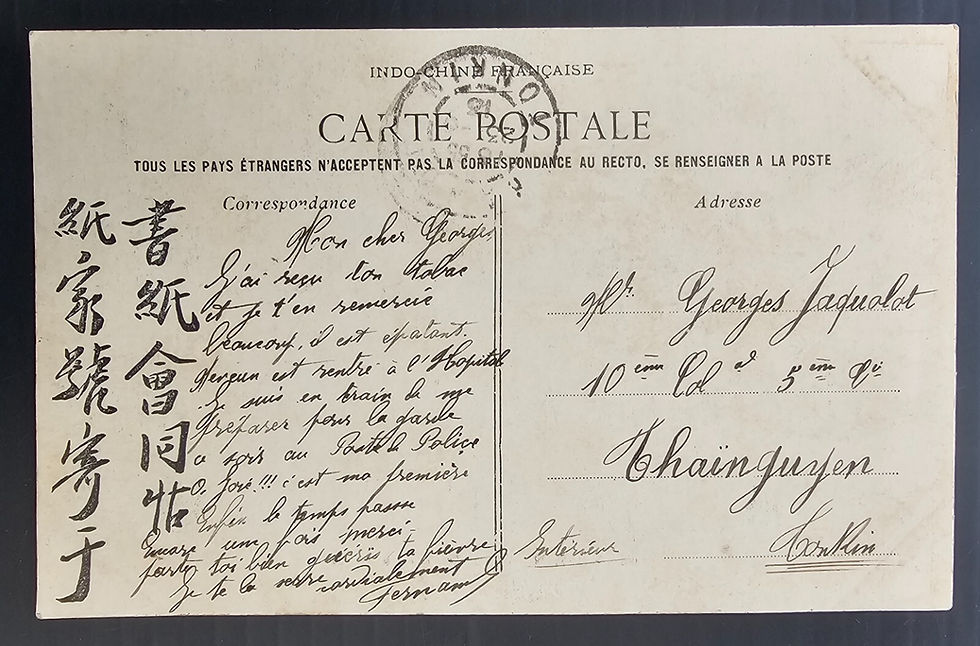 INDO-CHINE FRANÇAISE
CARTE POSTALE
TOUS LES PAYS ÉTRANGERS N'ACCEPTENT PAS LA CORRESPONDANCE AU RECTO, SE RENSEIGNER A LA POSTE
TONKIN
Correspondance
Mon cher Georges
J'ai reçu ton tabac
et je t'en remercie
beaucoup, il est épatant.
est rentré à l'Hopital
Je suis en train de me
préparer pour la garde
ce soir au Poste de Police
O Joie!!! c'est ma première
Enfin le temps passe
Encore une fois merci
porte toi bien guéris ta fièvre
Je te la serre cordialement
Adresse
Mr. Georges Jaquolot
10ème Col al 5ème Cie
Thaïnguyen
Intérieur
Tonkin
書紙會同帖
紙家號寄于